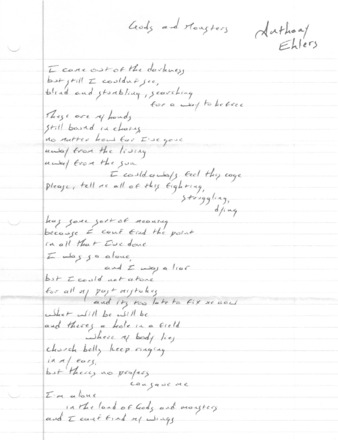 Gods and Monsters
Anthony
Ehlers
I came out of the darkness
but still I couldnt see,
blind and stumbling, searching
for a way to be free
These are my hands
still bound in chains
no matter how far I've gone
away from the living
away from the sun
I could always feel this cage
please, tell me all of this fighting,
struggling,
dying
has some sort of meaning
because I cant find the point
in all that I've done
I was so alone,
and I was a liar
but I could not atone
for all my past mistakes
and its too late to fix me now
what will be will be
and theres a hole in a field
where my body lies
church bells keep ringing
in my ears,
but theres no prayers
can save me
I'm alone
in the land of Gods and monsters
and I cant find my wings